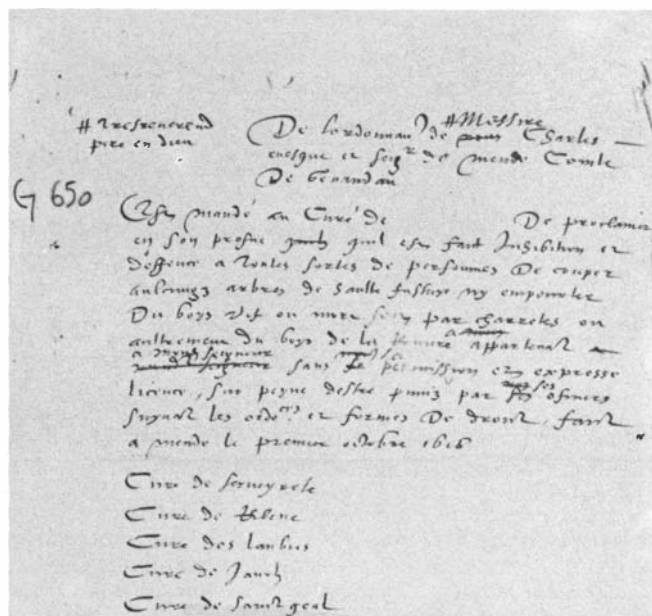 # Tresreverend
pere en dieu
# Messire
De lordonnan de Charles
evesque et seigr de mende Comte
De Gevaudan
G 650
Est mandé au Curé de De proclamer
en son prosne quil est fait Inhibition et
deffence a toutes sortes de personnes De couper
aulcungz arbres de ny emporter
Du boys vif ou mort soit par charretes ou
aultrement du boys de la appartenant
a mond seigneur
sans permission et expresse
licence, sur peyne destre puniz par ses officiers
suyvant les ordces et formes De droict. faict
a mende le premier octobre 1616
Cure de serveyrete
Cure de Ribene
Cure des laubies
Cure de
Cure de sainct geal